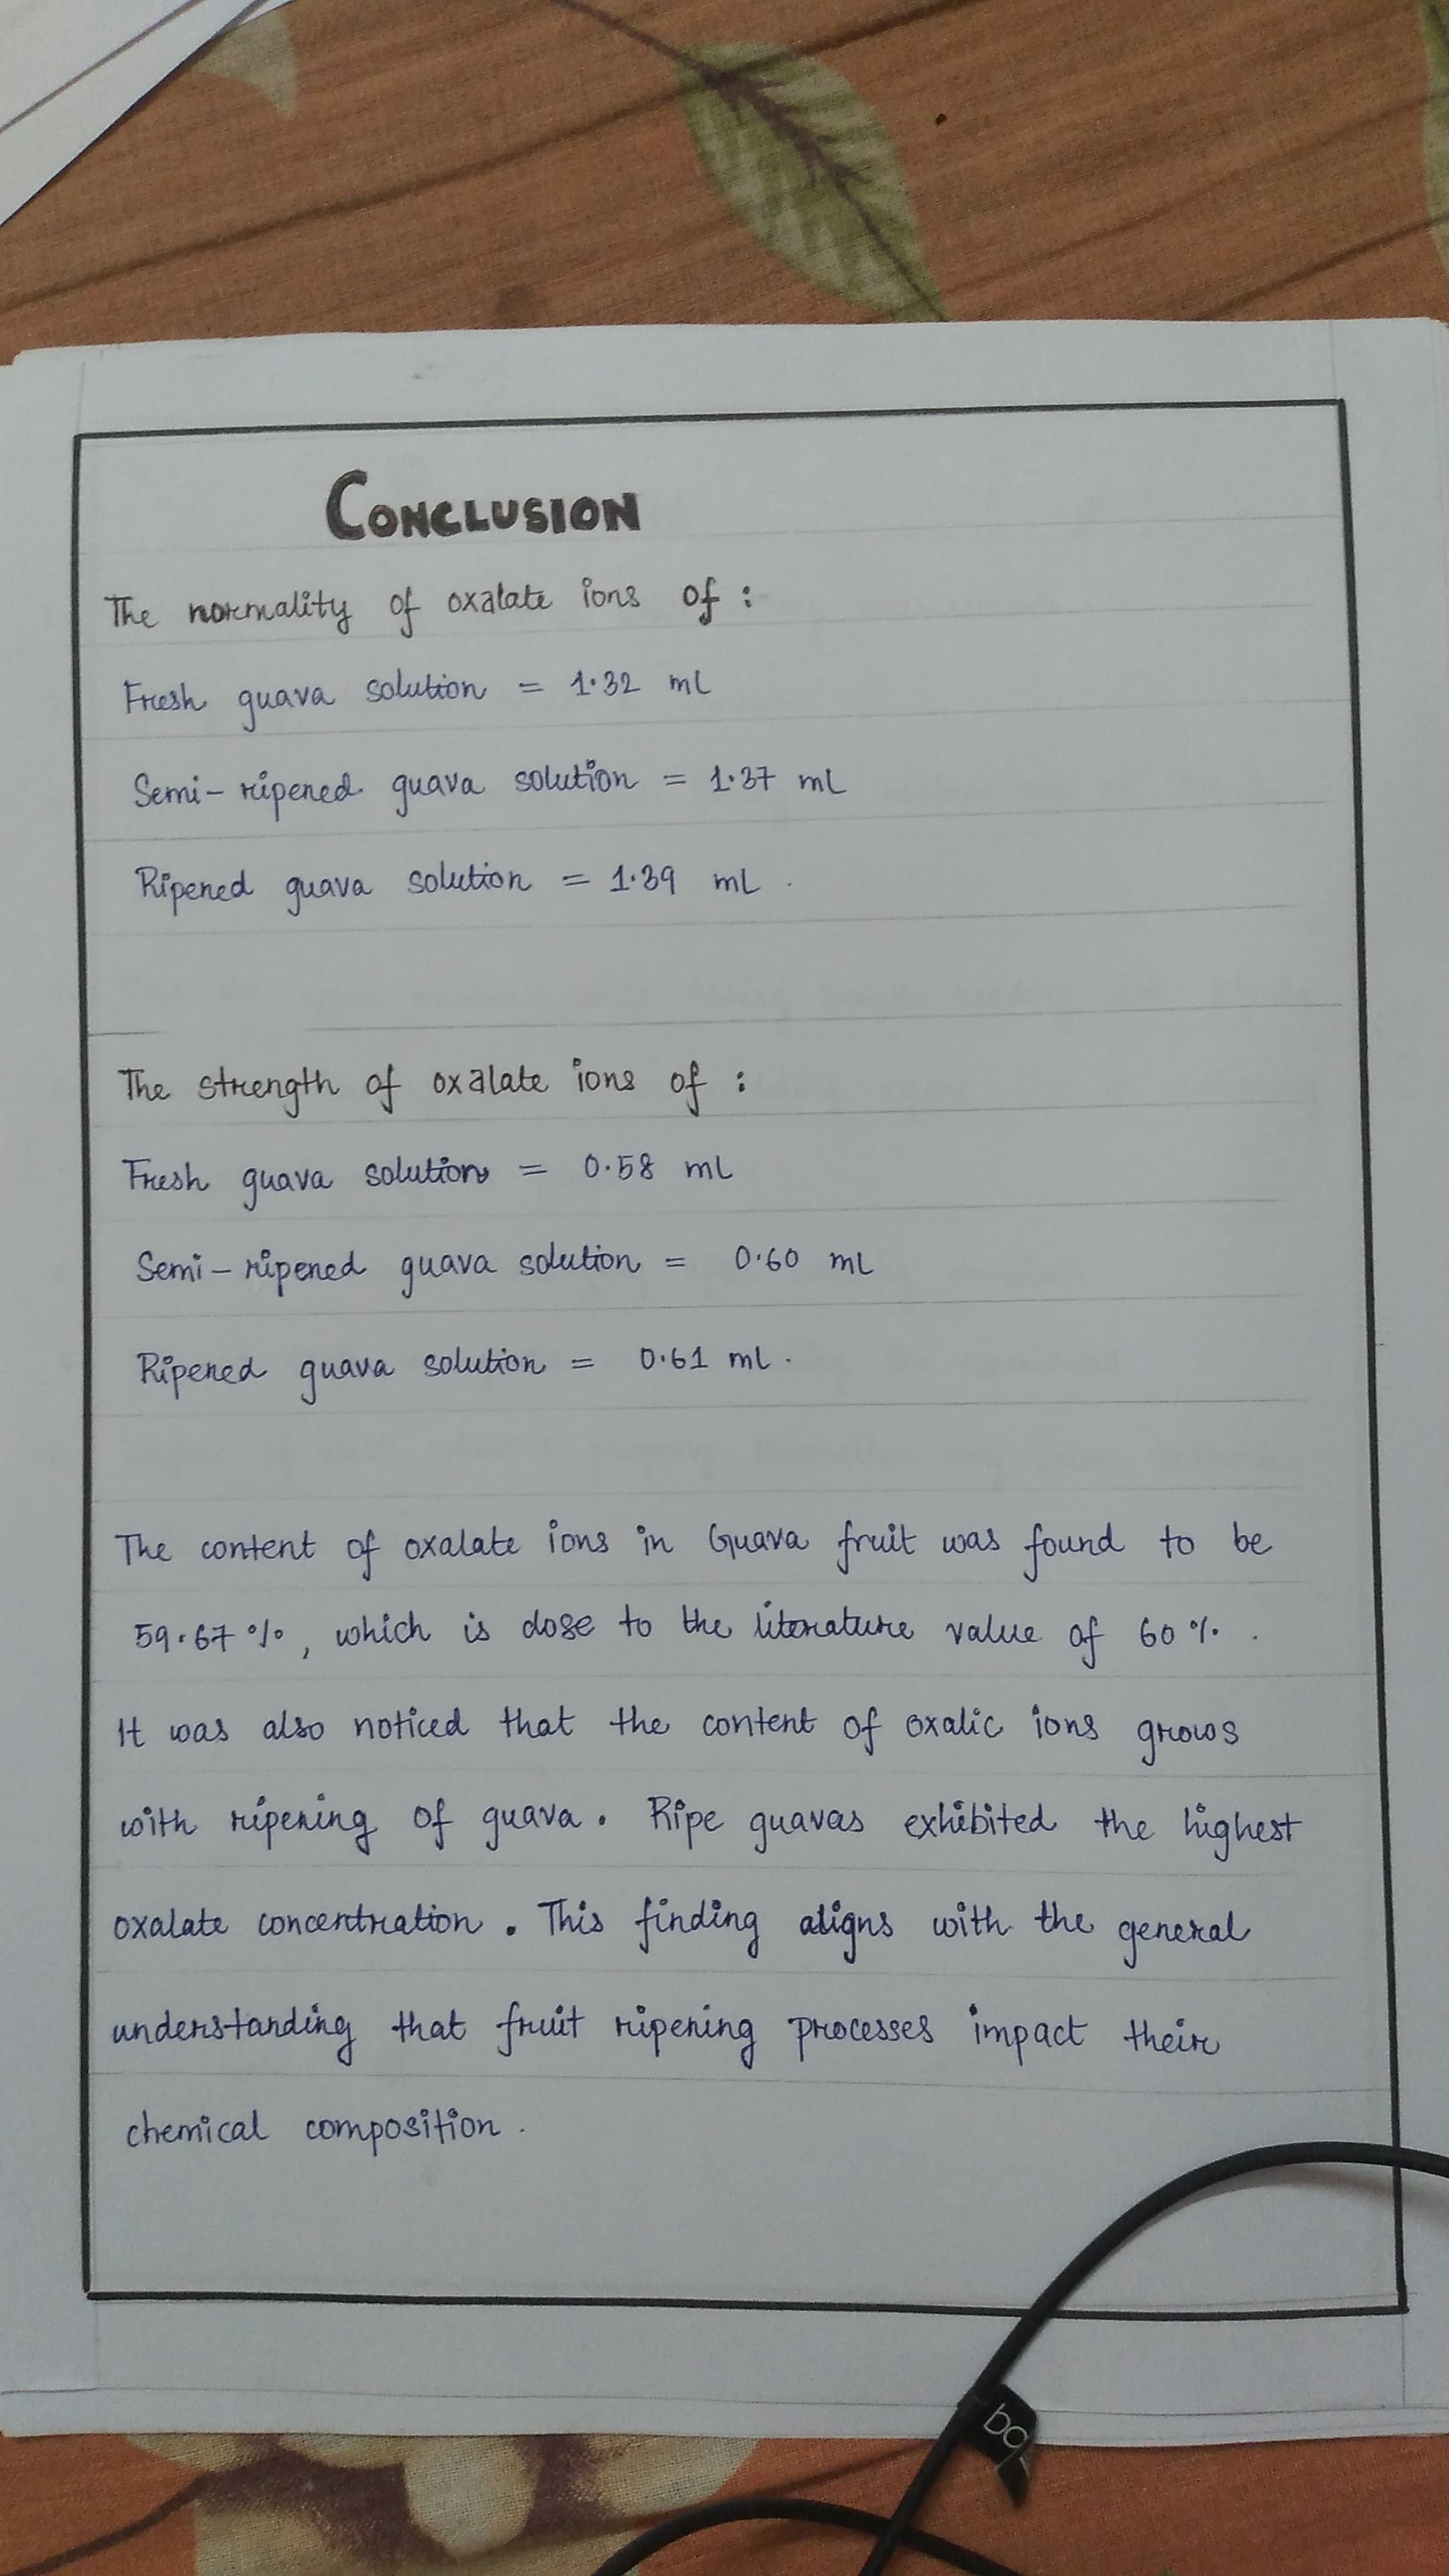 CONCLUSION
The normality of oxalate ions of :
Fresh guava solution = 1.32 ml
Semi-ripened guava solution = 1.37 ml
Ripened guava solution = 1.39 ml .
The strength of oxalate ions of :
Fresh guava solution = 0.58 ml
Semi-ripened guava solution = 0.60 ml
Ripened guava solution = 0.61 ml .
The content of oxalate ions in Guava fruit was found to be
59.67 %, which is close to the literature value of 60 % .
It was also noticed that the content of oxalic ions grows
with ripening of guava. Ripe guavas exhibited the highest
oxalate concentration. This finding aligns with the general
understanding that fruit ripening processes impact their
chemical composition .